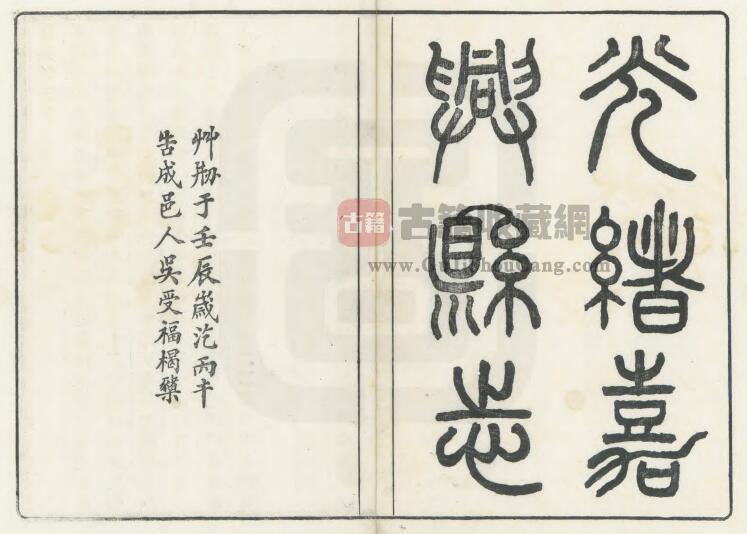 光緒嘉
興縣志
艸刱于壬辰嵗汔丙午
告成邑人吳受福楬櫫
古籍
古籍收藏網
www.GujiShouCang.com